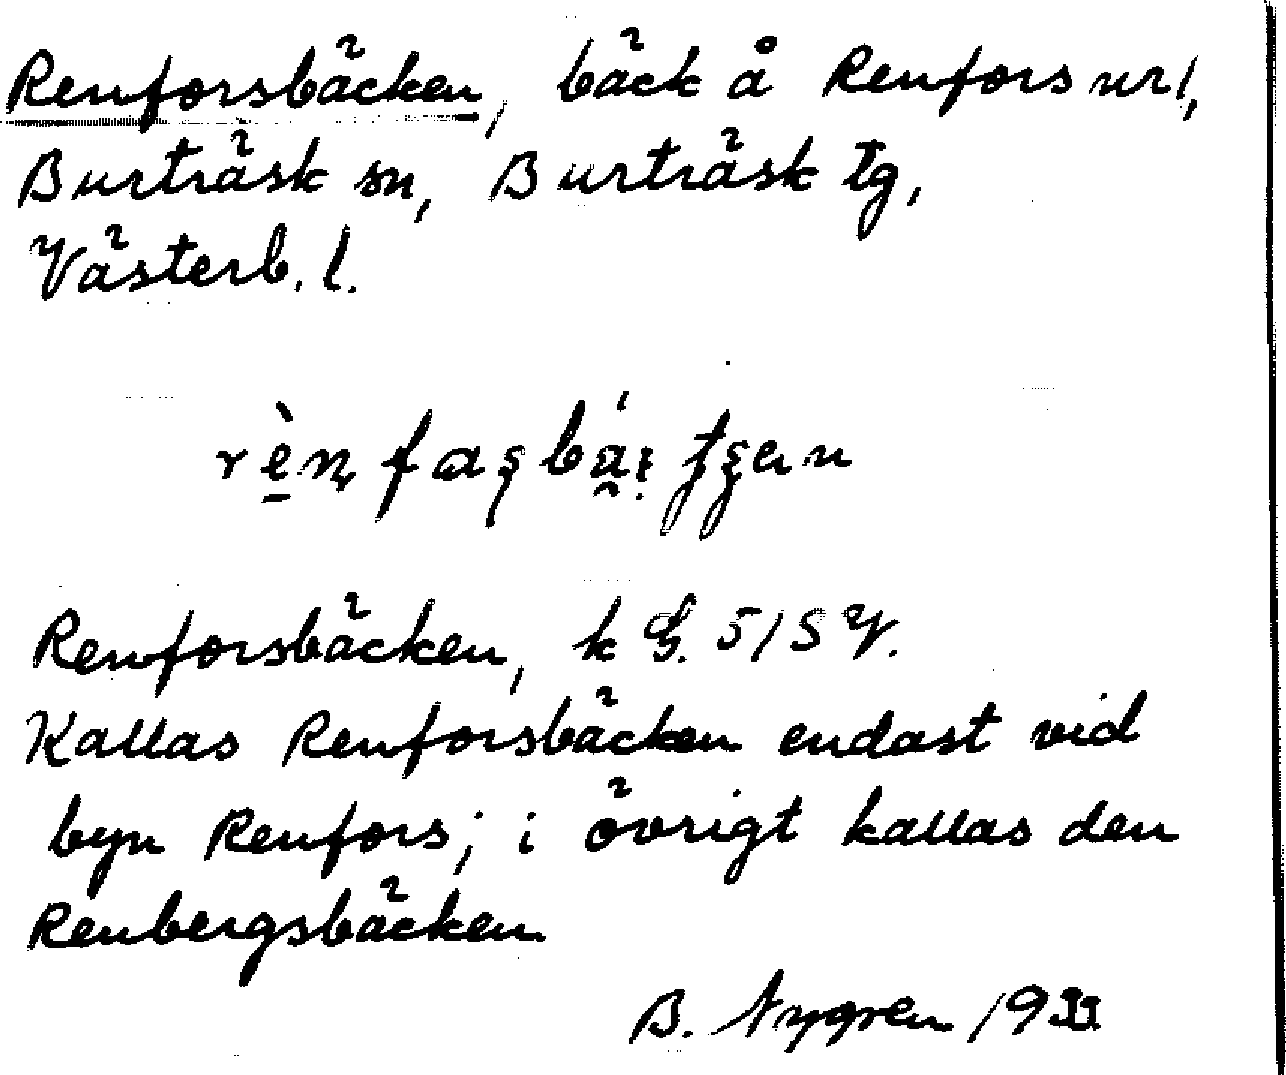 Renforsbäcken, bäck å Renfors url,
Burträsk sn, Burträsk tg,
Västerb. l.
Renforsbäcken, k G. 5/S V.
Kallas Renforsbäcken endast vid
byn Renfors; i övrigt kallas den
Renbergsbäcken
B. Nygren 1933